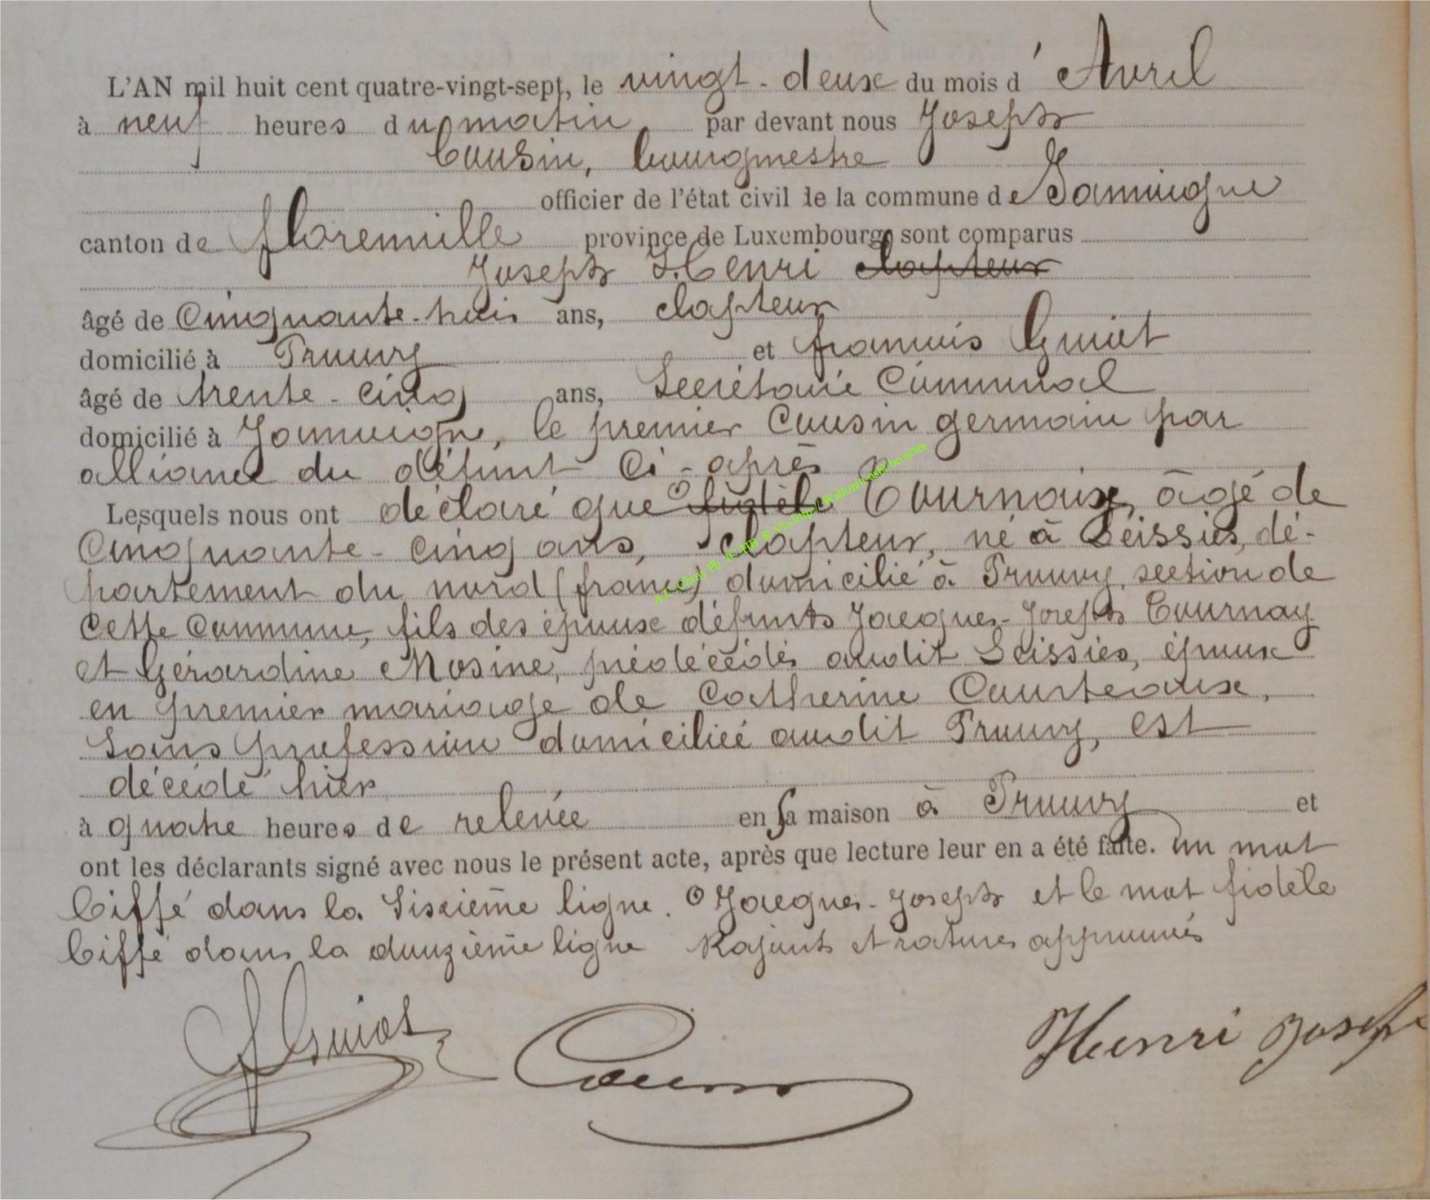 L'AN mil huit cent quatre-vingt-sept, le vingt-deux du mois d'Avril
à neuf heures du matin par devant nous Joseph
Cousin, bourgmestre
officier de l'état civil de la commune de Jamoigne
canton de Florenville province de Luxembourg sont comparus
Joseph Henri clapteur
âgé de cinquante-trois ans, clapteur
domicilié à Prouvy et François Guiot
âgé de trente-cinq ans, Secrétaire Communal
domicilié à Jamoigne, le premier cousin germain par
alliance du défunt ci-après
Lesquels nous ont déclaré que fidèle Tournoix, âgé de
cinquante-cinq ans, clapteur, né à Seissies, dé-
partement du nord (france) domicilié à Prouvy, section de
cette commune, fils des époux défunts Jacques-Joseph Tournay
et Gérardine Mosine, prédécédés audit Seissies, époux
en premier mariage de Catherine Courteaux,
sans profession domiciliée audit Prouvy, est
décédé hier
à quatre heures de relevée en sa maison à Prouvy et
ont les déclarants signé avec nous le présent acte, après que lecture leur en a été faite. un mot
biffé dans la sixième ligne. Jacques-Joseph et le mot fidèle
biffé dans la douzième ligne Rajouts et ratures approuvés
F Guiot Cousin Henri Joseph